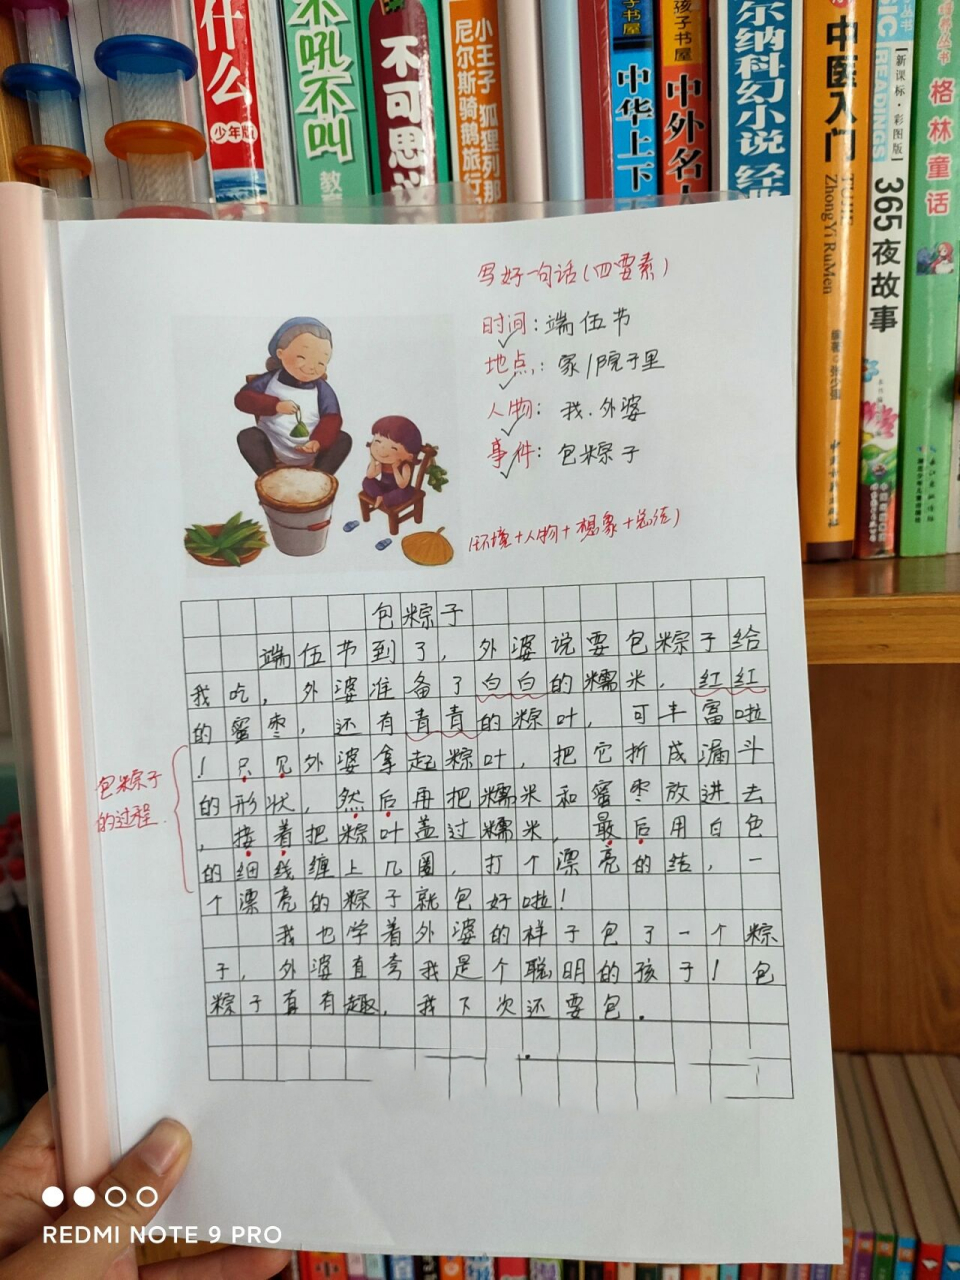 什么
少年版
不吼不叫
不可思议
小王子 狐狸列那
尼尔斯骑鹅旅行
子书屋
中华上下
孩子书屋
中外名人
尔纳科幻小说 经典
中医入门
ZhongYi RuMen
新课标·彩图版
365夜故事
格林童话
写好一句话(四要素)
时间:端伍节
地点:家/院子里
人物:我.外婆
事件:包粽子
(环境+人物+想象+总结)
包粽子
端伍节到了,外婆说要包粽子给
我吃,外婆准备了白白的糯米,红红
的蜜枣,还有青青的粽叶,可丰富啦
!只见外婆拿起粽叶,把它折成漏斗
的形状,然后再把糯米和蜜枣放进去
,接着把粽叶盖过糯米,最后用白色
的细线缠上几圈,打个漂亮的结,一
个漂亮的粽子就包好啦!
我也学着外婆的样子包了一个粽
子,外婆直夸我是个聪明的孩子!包
粽子真有趣,我下次还要包.
包粽子
的过程
REDMI NOTE 9 PRO